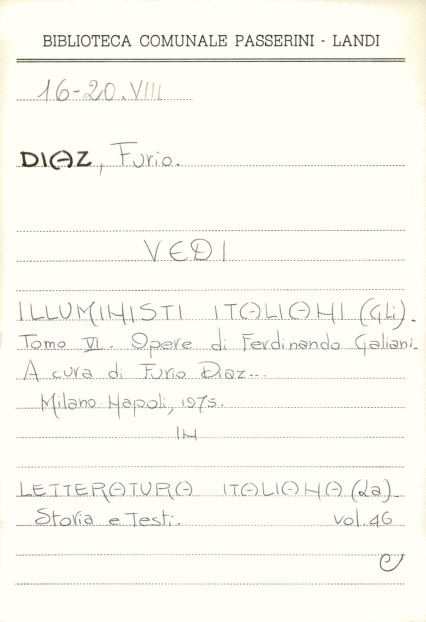 BIBLIOTECA COMUNALE PASSERINI - LANDI
16-20.VIII
DIAZ, Furio.
VEDI
ILLUMINISTI ITALIANI (Gli).
Tomo VI. Opere di Ferdinando Galiani.
A cura di Furio Diaz...
Milano Napoli, 1975.
IN
LETTERATURA ITALIANA (La).
Storia e Testi. vol. 46